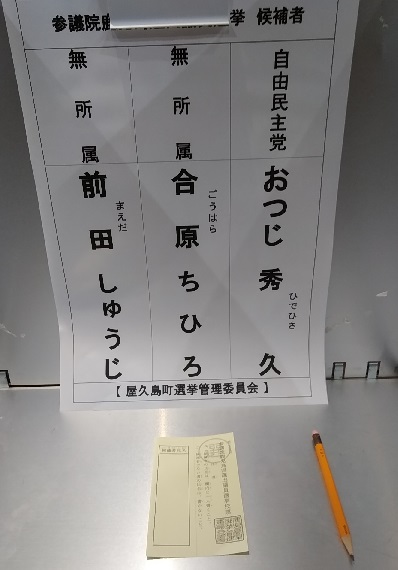 参議院鹿 挙 候補者
自由民主党
おつじ 秀久
ひでひさ
無所属
合原ちひろ
ごうはら
無所属
前田しゅうじ
まえだ
【 屋久島町選挙管理委員会 】
候補者氏名